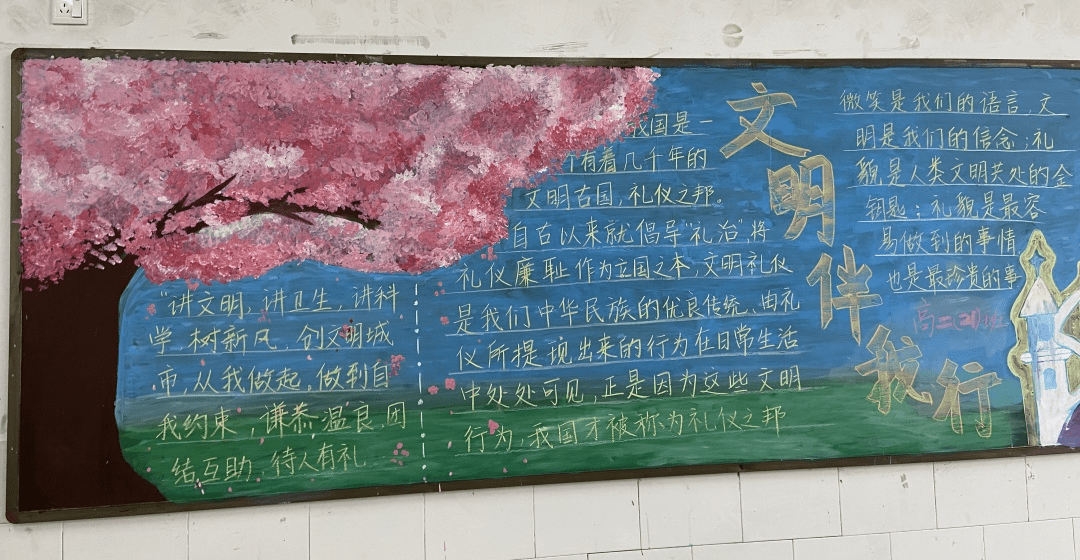 "讲文明,讲卫生,讲科
学,树新风,创文明城
市,从我做起,做到自
我约束,谦恭温良,团
结互助,待人有礼
我国是一
个有着几千年的
文明古国,礼仪之邦。
自古以来就倡导"礼治",将
礼仪廉耻作为立国之本,文明礼仪
是我们中华民族的优良传统、由礼
仪所提现出来的行为在日常生活
中处处可见,正是因为这些文明
行为,我国才被称为礼仪之邦
文明伴我行
微笑是我们的语言,文
明是我们的信念;礼
貌是人类文明共处的金
钥匙:礼貌是最容
易做到的事情
也是最珍贵的事